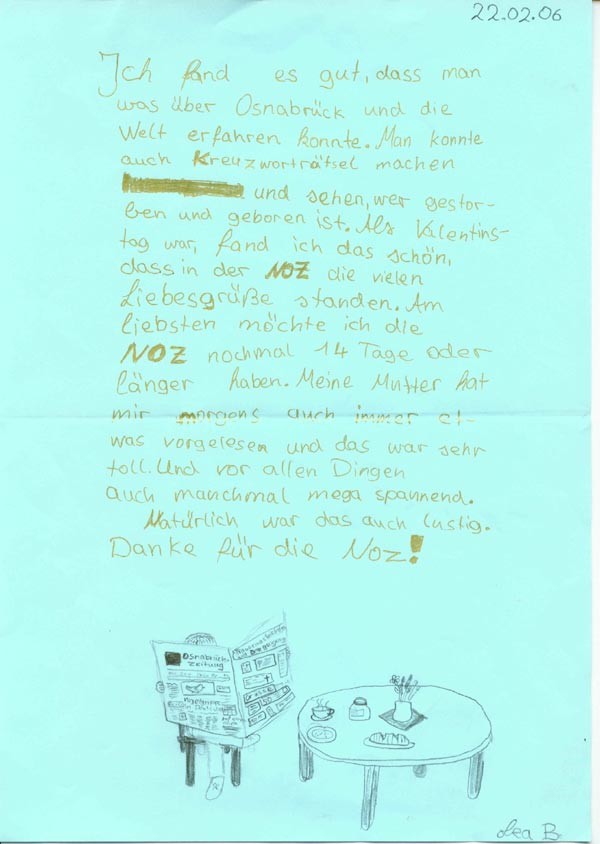 22.02.06
Ich fand es gut, dass man
was über Osnabrück und die
Welt erfahren konnte. Man konnte
auch Kreuzworträtsel machen
und sehen, wer gestor-
ben und geboren ist. Als Valentins-
tag war, fand ich das schön,
dass in der NOZ die vielen
Liebesgrüße standen. Am
liebsten möchte ich die
NOZ nochmal 14 Tage oder
länger haben. Meine Mutter hat
mir morgens auch immer et-
was vorgelesen und das war sehr
toll. Und vor allen Dingen
auch manchmal mega spannend.
Natürlich war das auch lustig.
Danke für die Noz!
Zeitung
Lea B.